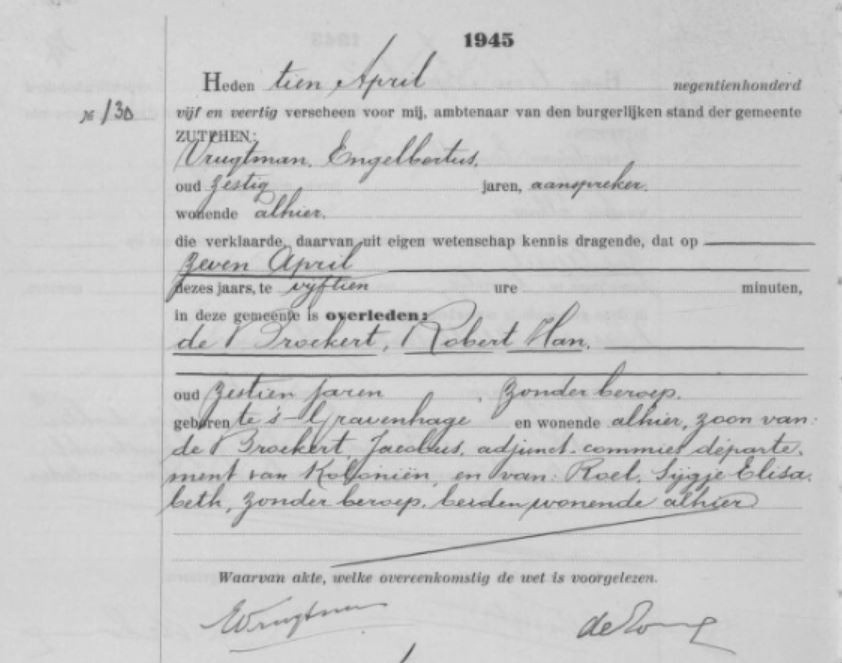 1945
Heden tien April negentienhonderd
№ 130 vijf en veertig verscheen voor mij, ambtenaar van den burgerlijken stand der gemeente
ZUTPHEN:
Vrugtman, Engelbertus,
oud zestig jaren, aanspreker,
wonende alhier,
die verklaarde, daarvan uit eigen wetenschap kennis dragende, dat op
zeven April
dezes jaars, te vijftien ure minuten,
in deze gemeente is overleden:
de Broekert, Robert Han,
oud zestien jaren, zonder beroep,
geboren te 's-Gravenhage en wonende alhier, zoon van:
de Broekert, Jacobus, adjunct-commies departe-
ment van Koloniën, en van: Roel, Sijgje Elisa-
beth, zonder beroep, beiden wonende alhier
Waarvan akte, welke overeenkomstig de wet is voorgelezen.
EVrugtman de Jong